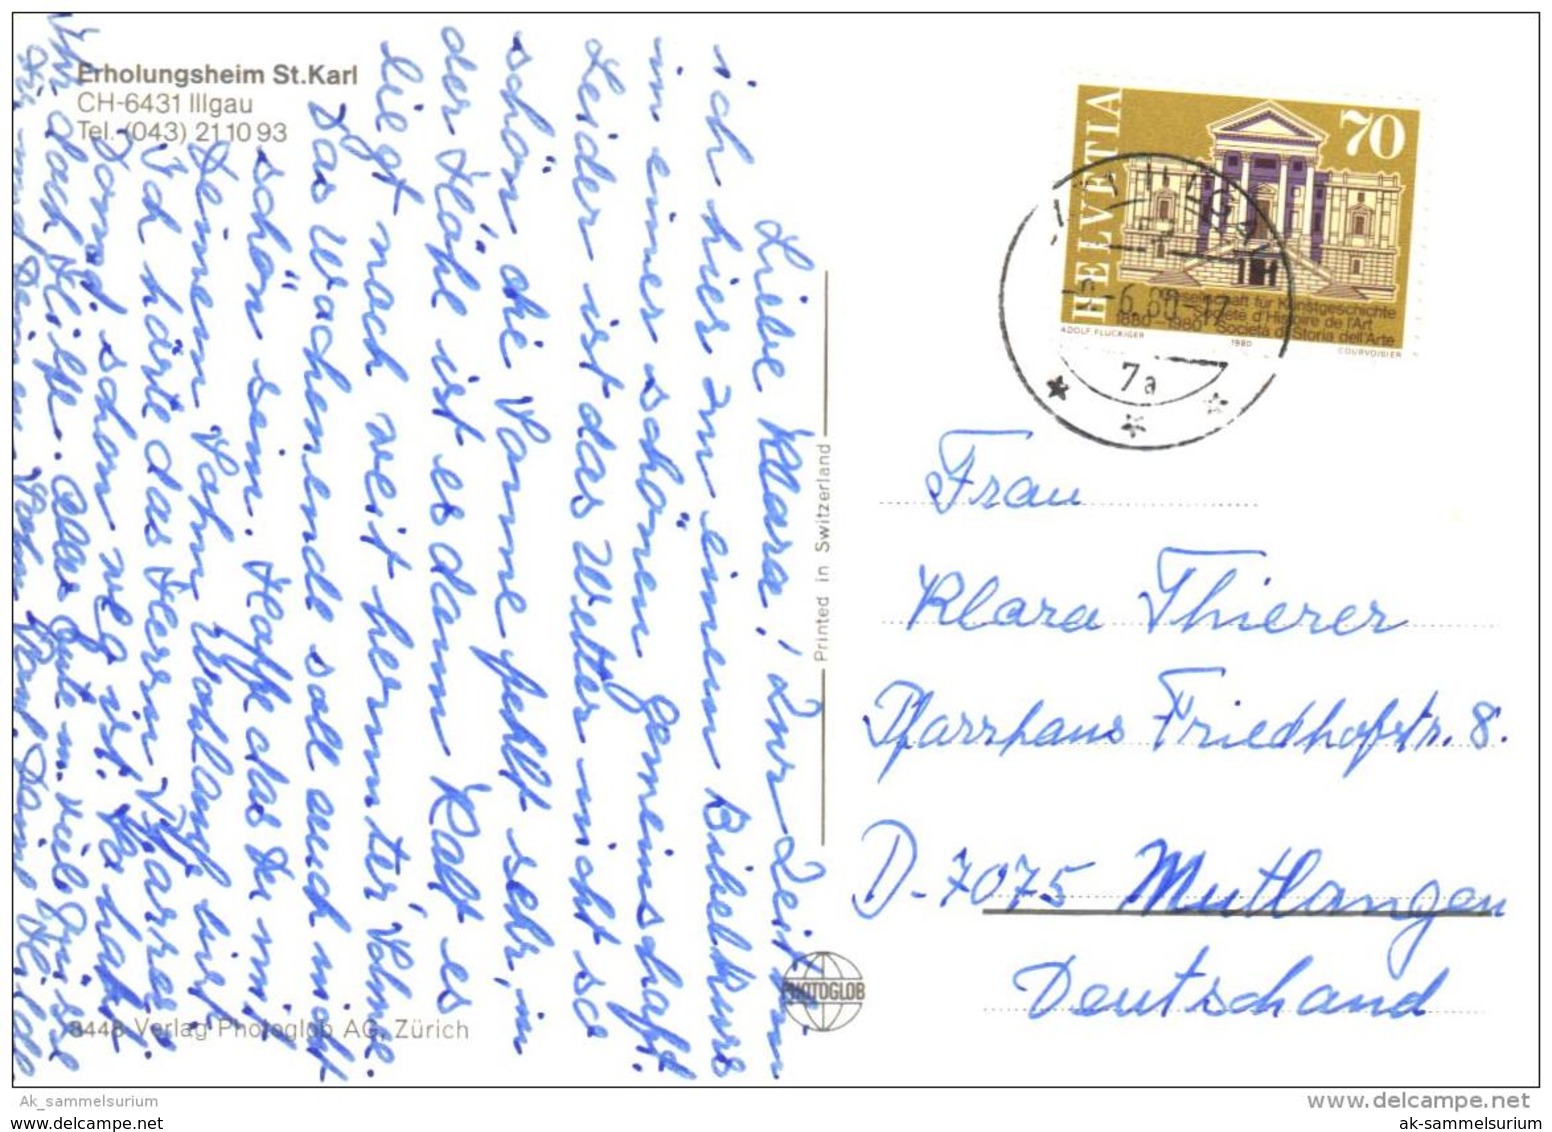 Erholungsheim St.Karl
CH-6431 Illgau
Tel. (043) 21 10 93
Liebe Klara! Zur Zeit bin
ich hier zu einem Bibelkurs
in einer schönen Gemeinschaft.
Leider ist das Wetter nicht so
schön, die Sonne fehlt sehr, in
der Höhe ist es dann kalt es
liegt nach weit herunter Schnee.
Das Wochenende soll auch nicht
schön sein. Hoffe das Du mit
Deinem Sohn Wohlauf bist.
Ich hörte das Herrn Pfarrer
schon weg ist. So habt
Ihr doch Hilfe. Alles Gute u. viel Grüsse
Dir und Deinem Sohn Hilde
HELVETIA
70
Gesellschaft für Kunstgeschichte
Société d'Histoire de l'Art
1880-1980 Società di Storia dell'Arte
ADOLF FLÜCKIGER
1980
COURVOISIER
6.80-17
7a
Printed in Switzerland
PHOTOGLOB
Frau
Klara Thierer
Pfarrhaus Friedhofstr. 8.
D-7075 Mutlangen
Deutschand
8448 Verlag Photoglob AG, Zürich
Ak_sammelsurium
www.delcampe.net
www.delcampe.net
ak-sammelsurium